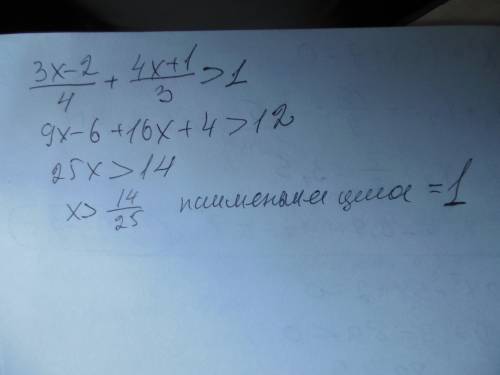 (3x-2)/4 + (4x+1)/3 > 1
9x-6+16x+4>12
25x>14
x> 14/25 наименьшая целое = 1